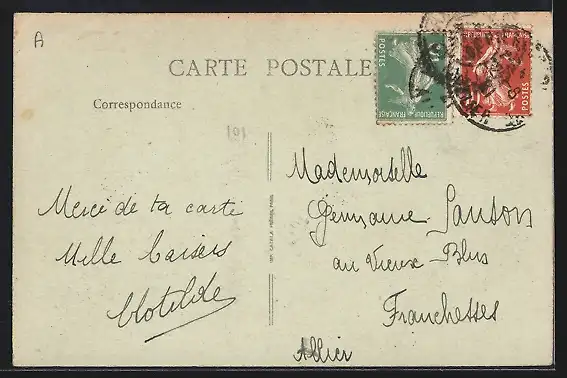 A
CARTE POSTALE
Correspondance
101
POSTES
REPUBLIQUE FRANÇAISE
POSTES
Merci de ta carte
Mille baisers
Clotilde
Mademoiselle
Germaine Lauton
au Vieux-Blus
Franchesses
Allier
IMP. CATALA FRÈRES, PARIS